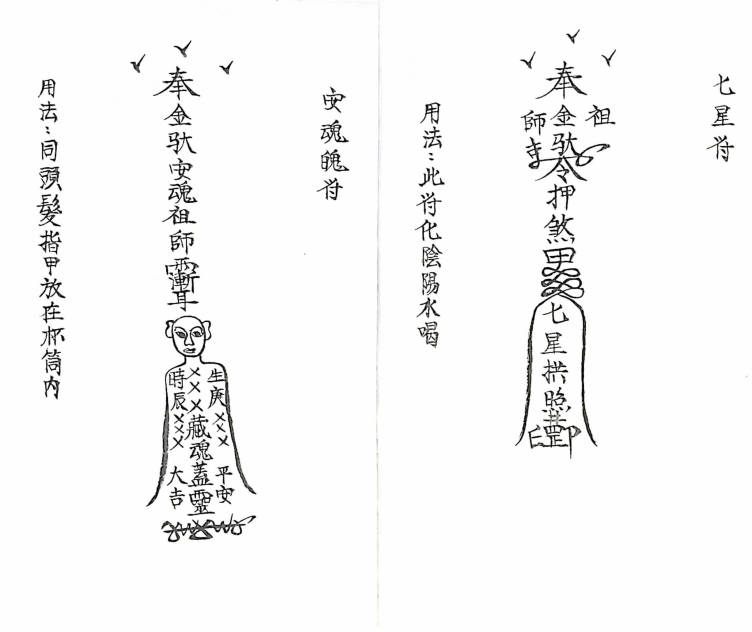 七星符
奉
祖師
金驮
令押煞
七星拱照
用法：此符化陰陽水喝
安魂魄符
奉金驮安魂祖師
生庚×××平安
×××藏魂蓋靈
時辰×××大吉
用法：同頭髮指甲放在杯筒内